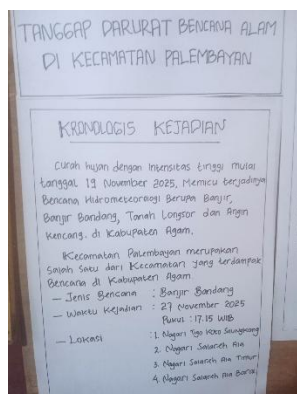 TANGGAP DARURAT BENCANA ALAM
DI KECAMATAN PALEMBAYAN
KRONOLOGIS KEJADIAN
Curah hujan dengan Intensitas tinggi mulai
tanggal 19 November 2025, Memicu terjadinya
Bencana Hidrometeorologi Berupa Banjir,
Banjir Bandang, Tanah Longsor dan Angin
Kencang. di Kabupaten Agam.
Kecamatan Palembayan merupakan
Salah Satu dari Kecamatan yang terdampak
Bencana di Kabupaten Agam.
- Jenis Bencana : Banjir Bandang
- Waktu Kejadian : 27 November 2025
Pukul : 17.15 WIB
- Lokasi : 1. Nagari Tigo Koto Silungkang
2. Nagari Salareh Aia
3. Nagari Salareh Aia Timur
4. Nagari Salareh Aia Barat